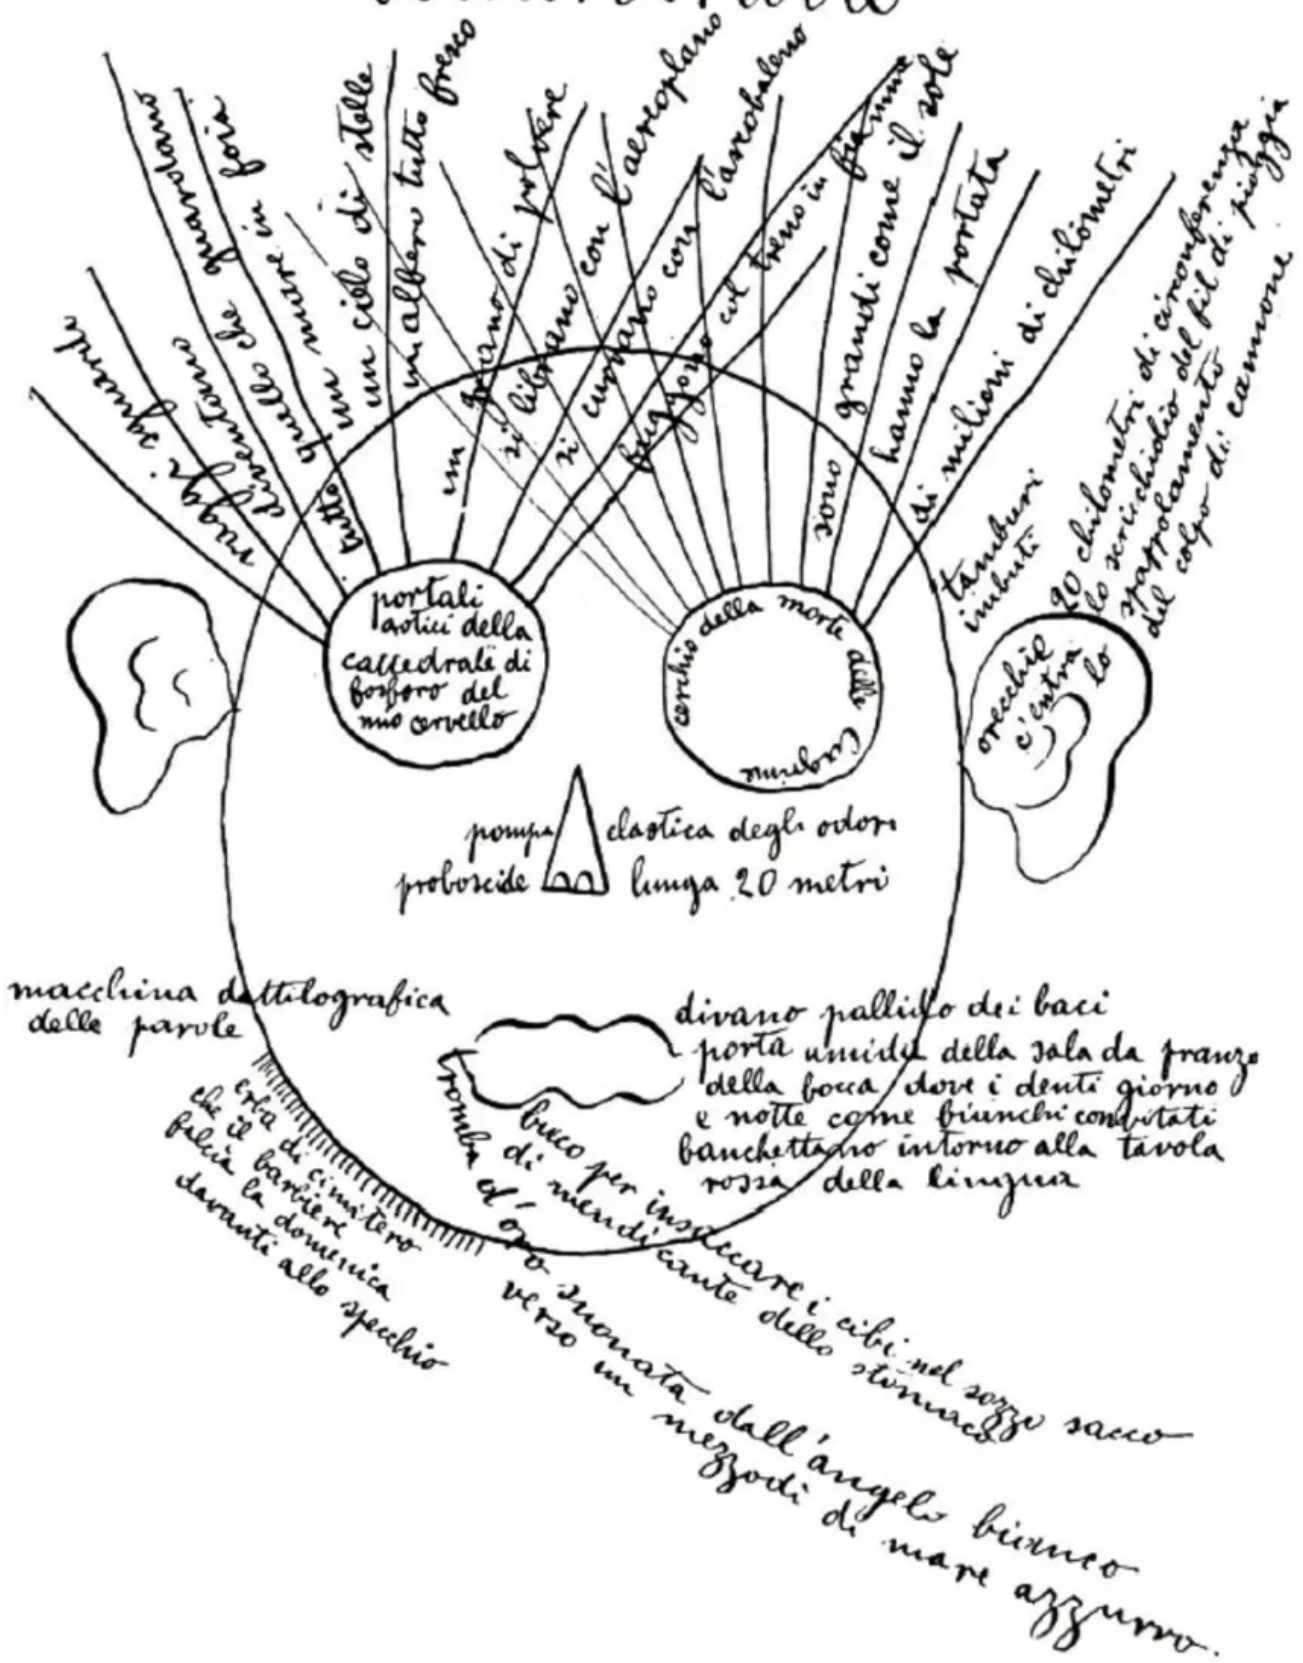 raggi sguardi
diventano
quello che guardano
tutto un mare in foia
un cielo di stelle
un albero tutto fresco
un grano di polvere
si librano con l'aereoplano
si curvano con l'arcobaleno
fuggono col treno in fiamme
sono grandi come il sole
hanno la portata
di milioni di chilometri
portali
gotici della
cattedrale di
fosforo del
mio cervello
cerchio della morte delle
tamburi
imbuti
20 chilometri di circonferenza
lo scricchiolio del fil di pioggia
del colpo di cannone.
orecchie
c'entra
lo
pompa elastica degli odori
proboscide lunga 20 metri
macchina dattilografica
delle parole
divano pallido dei baci
porta umida della sala da pranzo
della bocca dove i denti giorno
e notte come bianchi convitati
banchettano intorno alla tavola
rossa della lingua
erba di cimitero
che il barbiere
falcia la domenica
davanti allo specchio
buco per insaccare i cibi nel sozzo sacco
di mendicante dello stomaco
tromba d'oro suonata dall'angelo bianco
verso un mezzodì di mare azzurro.